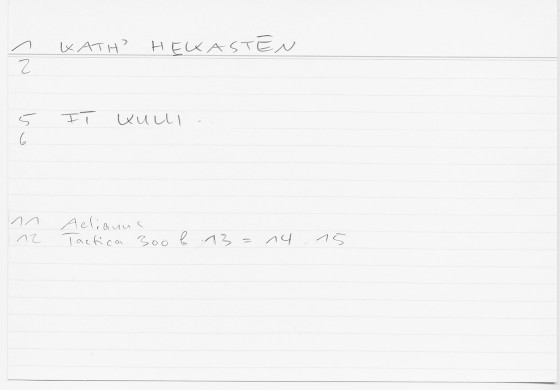 1 KATH' HEKASTĒN
2
5 IT
6
11 Aelianus
12 Tactica 300 b 13 = 14 15